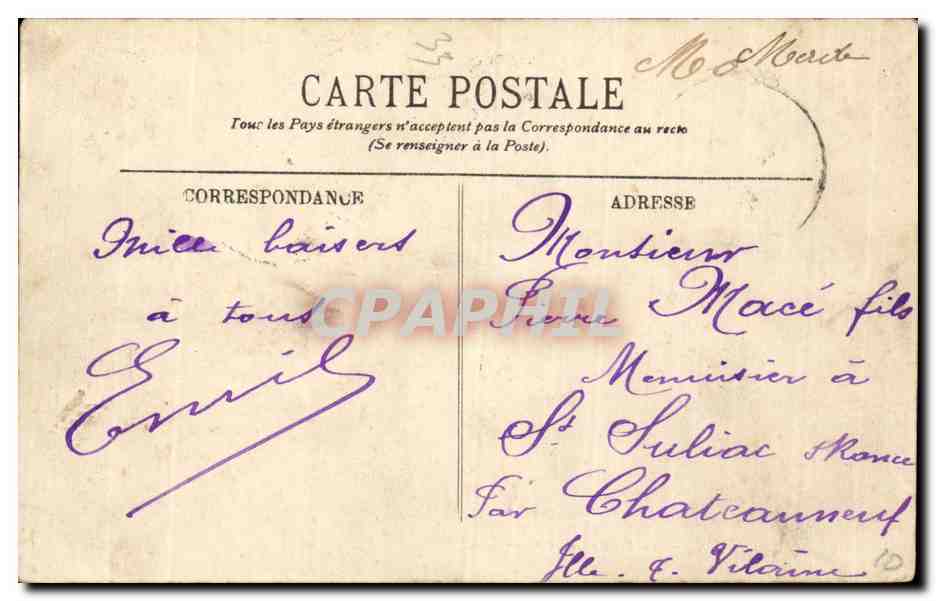 33
CARTE POSTALE
Tous les Pays étrangers n'acceptent pas la Correspondance au recto
(Se renseigner à la Poste).
CORRESPONDANCE
Mille baisers
à tous
Emile
ADRESSE
Monsieur
Pierre Macé fils
Menuisier à
St Suliac s/Rance
Par Chateauneuf
Ille & Vilaine
10
CPAPHIL